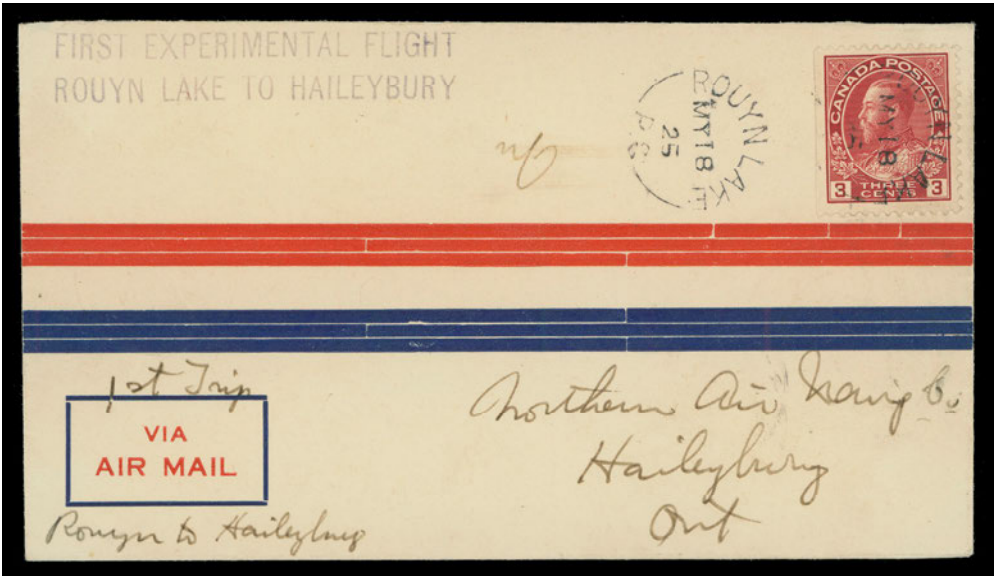 FIRST EXPERIMENTAL FLIGHT
ROUYN LAKE TO HAILEYBURY
ROUYN LAKE
MY 18
25
P.Q
CANADA POSTAGE
MY 18
3 THREE CENTS 3
1st Trip
VIA
AIR MAIL
Rouyn to Haileybury
Northern Air Navig Co.
Haileybury
Ont